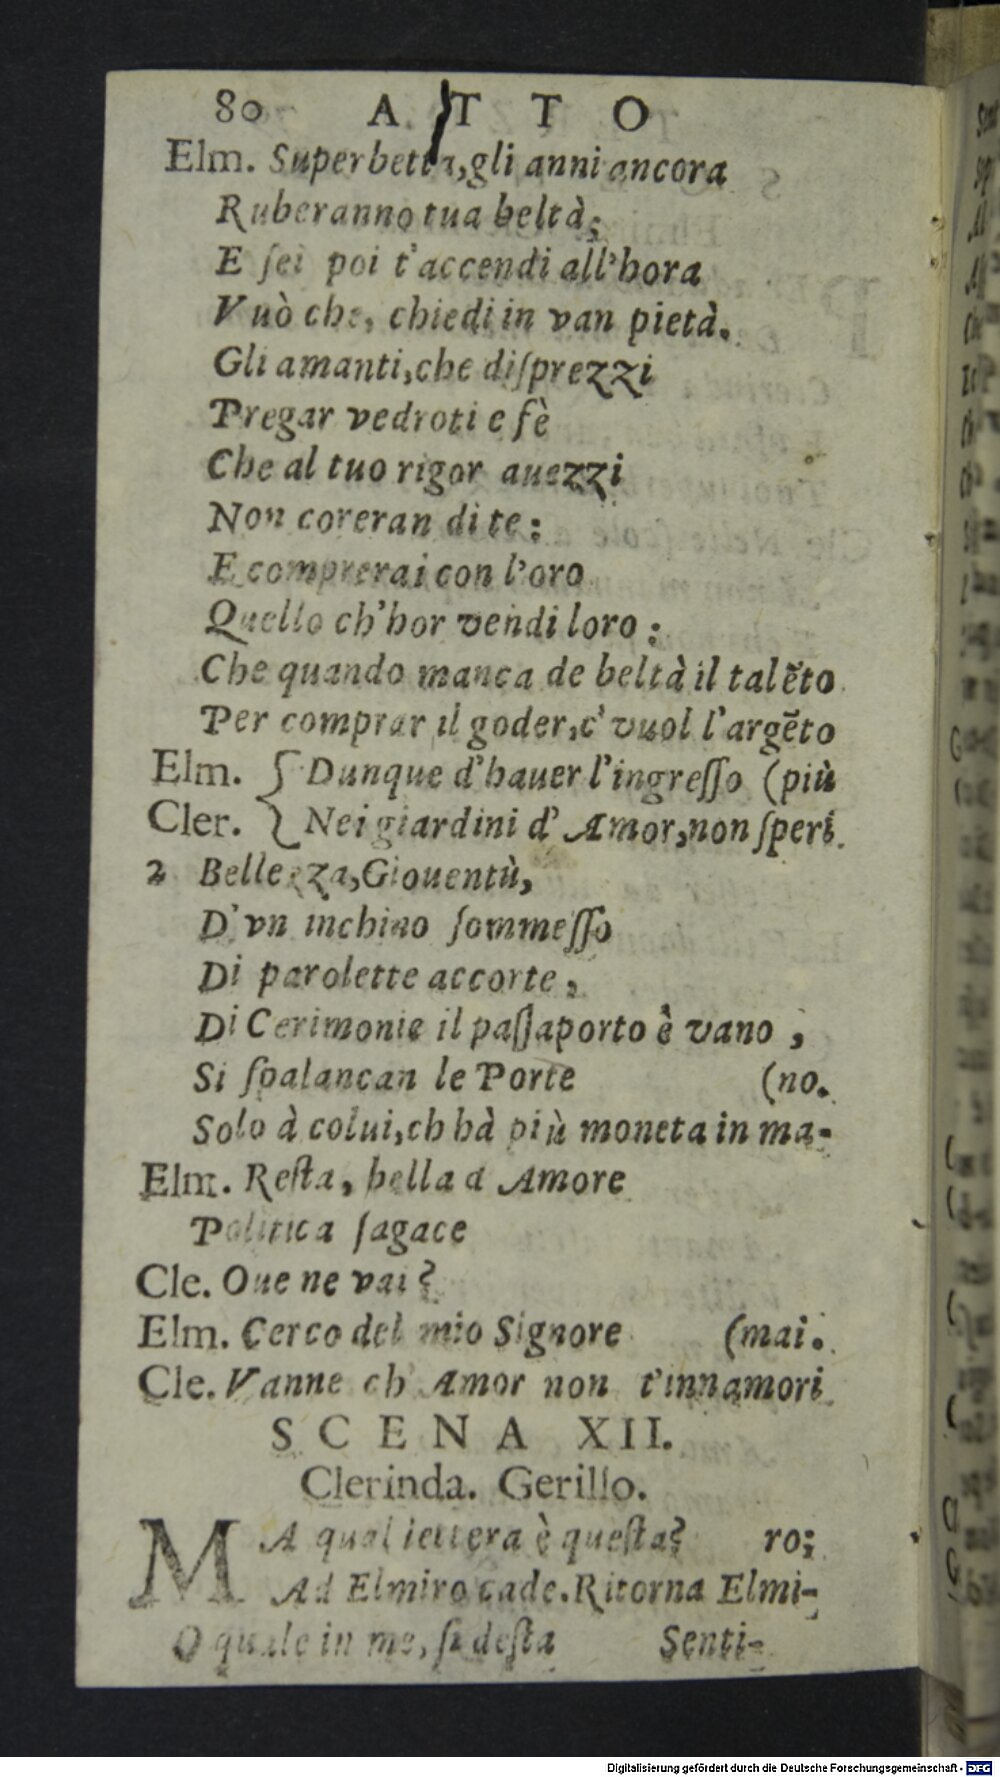 80 ATTO
Elm. Superbetta, gli anni ancora
Ruberanno tua beltà;
E ſei poi t'accendi all'hora
Vuò che, chiedi in van pietà.
Gli amanti, che diſprezzi
Pregar vedroti e fè
Che al tuo rigor auezzi
Non coreran di te:
E comprerai con l'oro
Quello ch'hor vendi loro:
Che quando manca de beltà il talẽto
Per comprar il goder, c' vuol l'argẽto
Elm. { Dunque d'hauer l'ingreſſo (più
Cler. { Nei giardini d'Amor, non ſperi.
2 Bellezza, Giouentù,
D'vn inchino ſommeſſo
Di parolette accorte,
Di Cerimonie il paſſaporto è vano,
Si ſpalancan le Porte (no.
Solo à colui, ch hà più moneta in ma-
Elm. Reſta, bella d Amore
Politica ſagace
Cle. Oue ne vai?
Elm. Cerco del mio Signore (mai.
Cle. Vanne ch' Amor non t'innamori
SCENA XII.
Clerinda. Gerillo.
MA qual lettera è queſta? ro;
Ad Elmiro cade. Ritorna Elmi-
O quale in me, ſi deſta Senti-
Digitalisierung gefördert durch die Deutsche Forschungsgemeinschaft - DFG